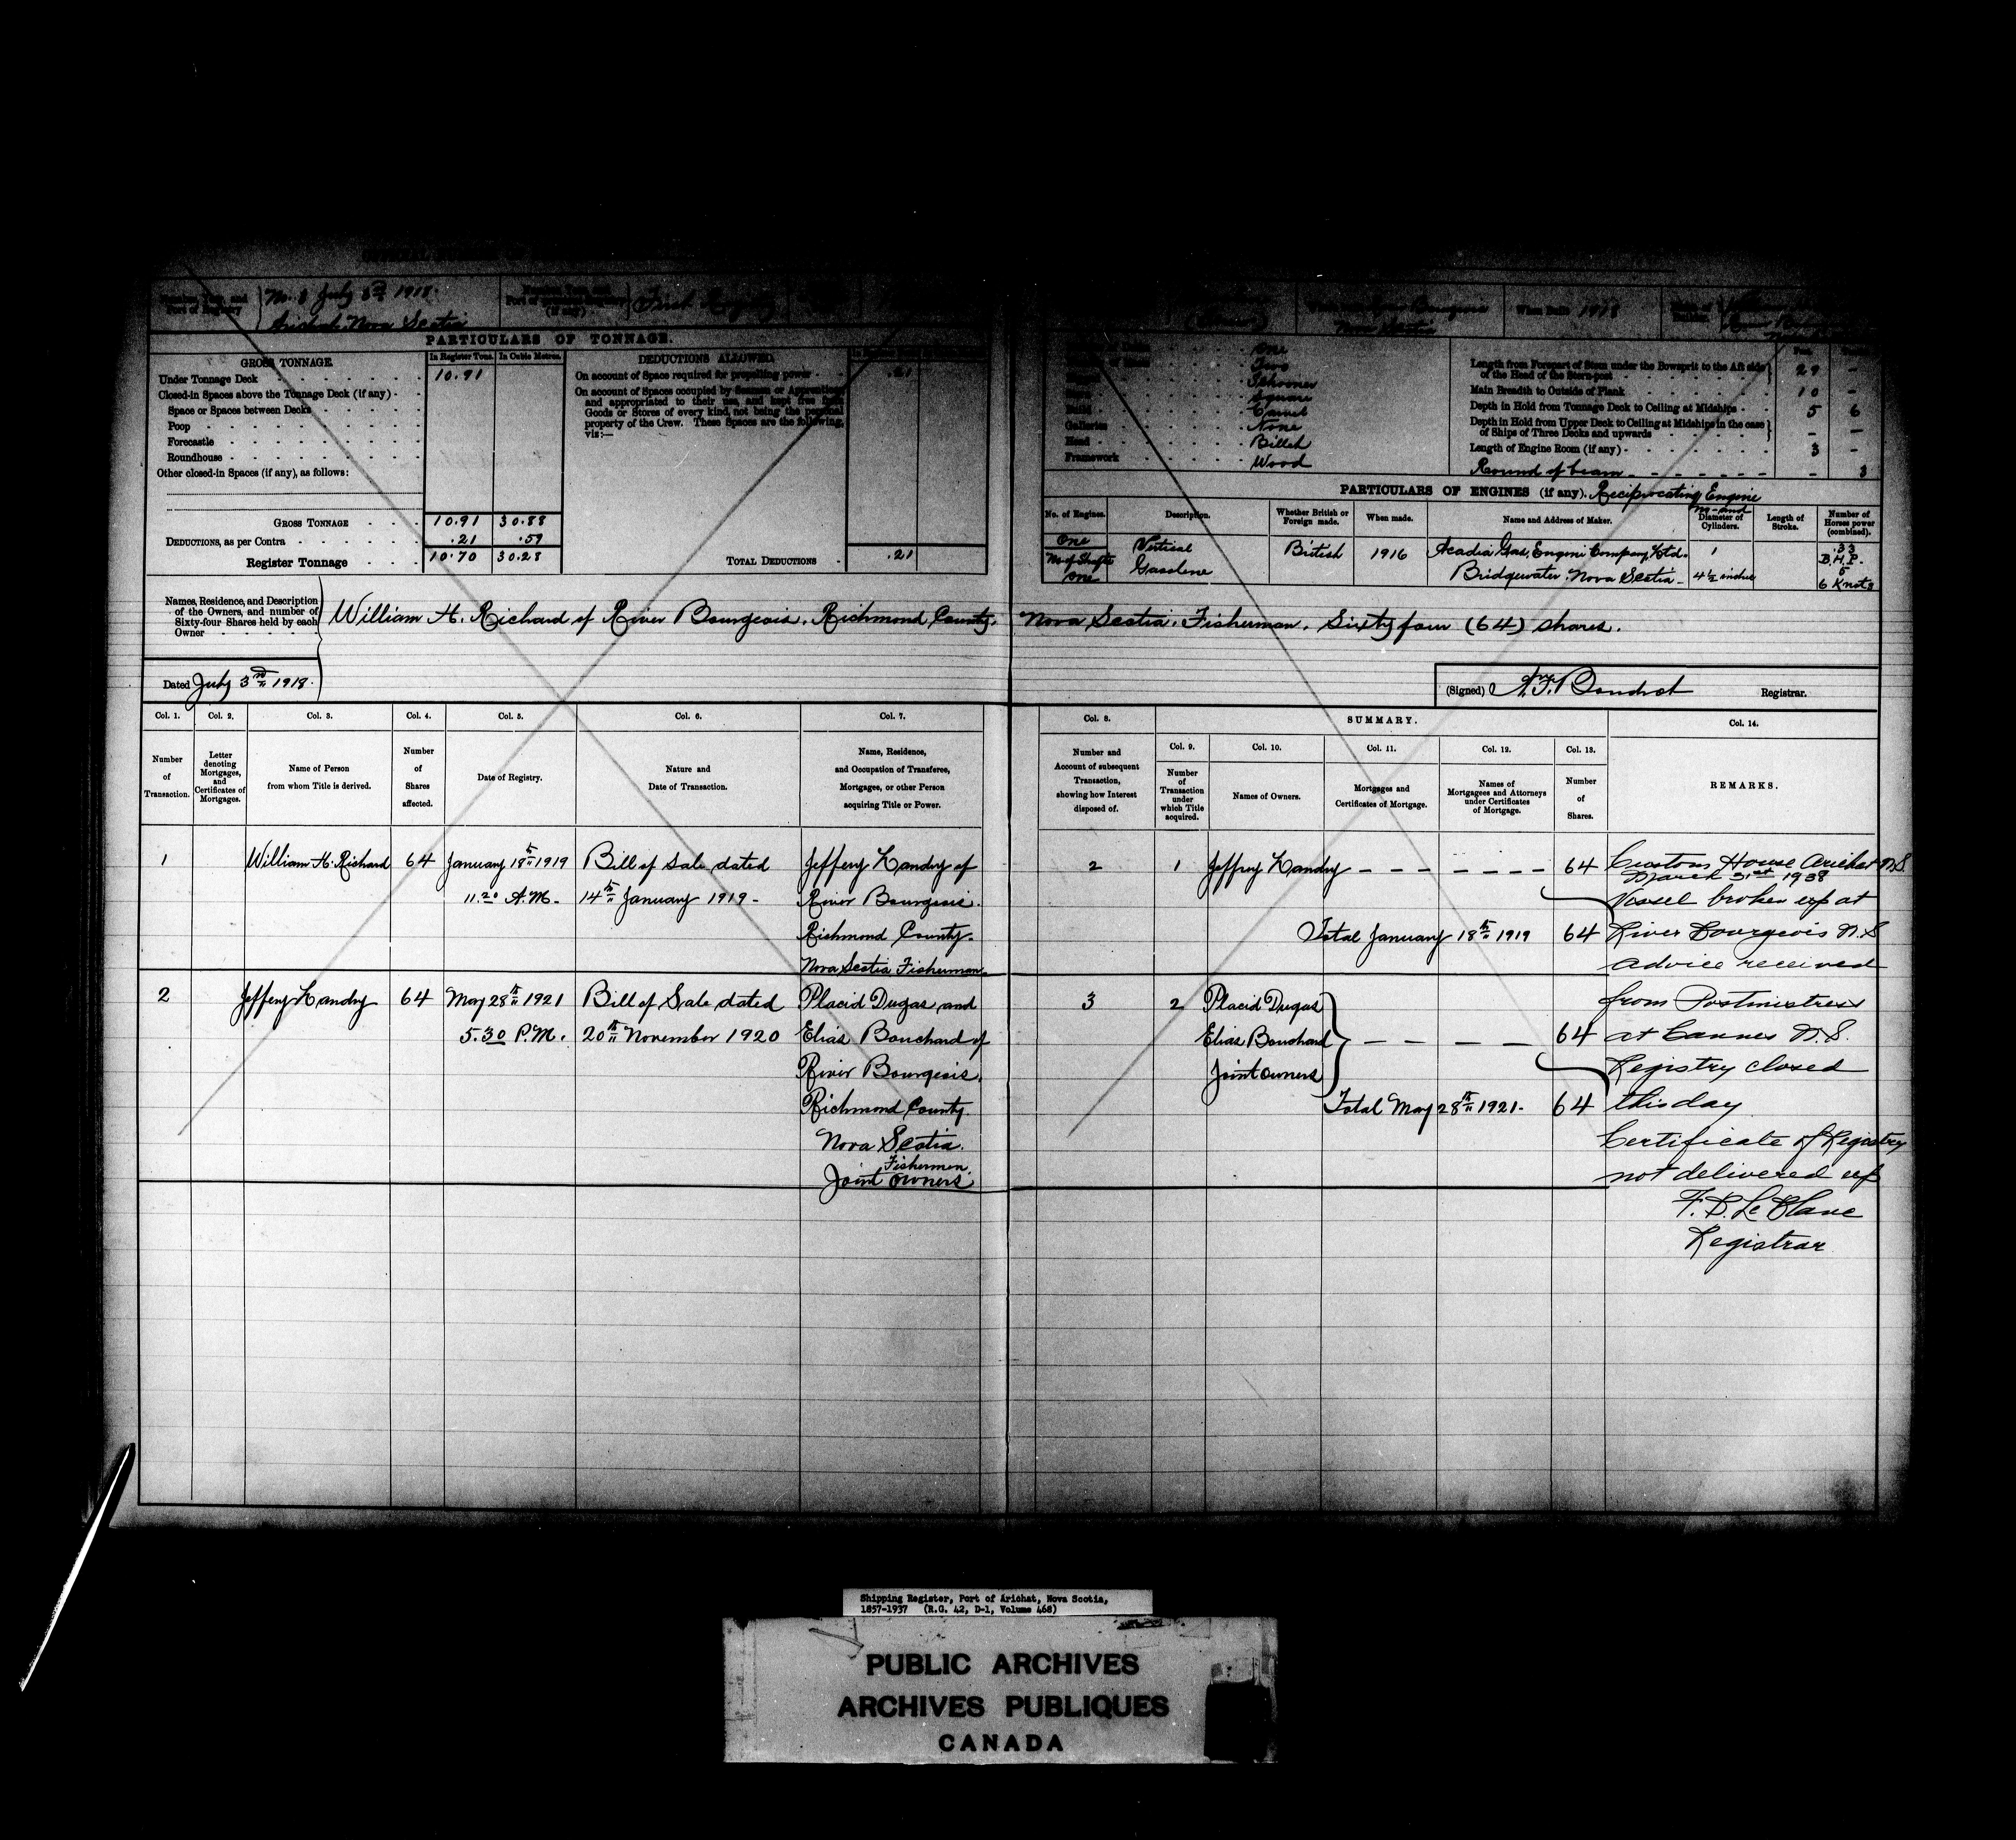 No. 8 July 3rd 1918
Port of Registry
Arichat Nova Scotia
First Registry
When Built 1918
PARTICULARS OF TONNAGE.
GROSS TONNAGE.
In Register Tons.
In Cubic Metres.
DEDUCTIONS ALLOWED.
Under Tonnage Deck 10.91
On account of Space required for propelling power .21
Closed-in Spaces above the Tonnage Deck (if any)
On account of Spaces occupied by Seamen or Apprentices
and appropriated to their use, and kept free from
Space or Spaces between Decks
Goods or Stores of every kind, not being the personal
Poop
property of the Crew. These Spaces are the following,
viz:—
Forecastle
Roundhouse
Other closed-in Spaces (if any), as follows:
GROSS TONNAGE 10.91 30.88
DEDUCTIONS, as per Contra .21 .59
Register Tonnage 10.70 30.28
TOTAL DEDUCTIONS .21
One
Two
Schooner
Square
Carvel
Galleries None
Head Billet
Framework Wood
Length from Forepart of Stem under the Bowsprit to the Aft side
of the Head of the Stern-post 29 -
Main Breadth to Outside of Plank 10 -
Depth in Hold from Tonnage Deck to Ceiling at Midships 5 6
Depth in Hold from Upper Deck to Ceiling at Midships in the case
of Ships of Three Decks and upwards - -
Length of Engine Room (if any) 3 -
Round of beam - 3
PARTICULARS OF ENGINES (if any). Reciprocating Engine
No. of Engines.
Description.
Whether British or
Foreign made.
When made.
Name and Address of Maker.
Diameter of
Cylinders.
Length of
Stroke.
Number of
Horses power
(combined).
One
No of Shafts
One
Vertical
Gasoline
British
1916
Acadia Gas, Engine Company, Ltd.
Bridgewater. Nova Scotia
1
4½ inches
.33
B.H.P.
5
6 Knots
Names, Residence, and Description
of the Owners, and number of
Sixty-four Shares held by each
Owner
William H. Richard of River Bourgeois. Richmond County. Nova Scotia. Fisherman. Sixty four (64) shares.
Dated July 3rd 1918.
(Signed) Registrar.
Col. 1.
Number
of
Transaction.
Col. 2.
Letter
denoting
Mortgages,
and
Certificates of
Mortgages.
Col. 3.
Name of Person
from whom Title is derived.
Col. 4.
Number
of
Shares
affected.
Col. 5.
Date of Registry.
Col. 6.
Nature and
Date of Transaction.
Col. 7.
Name, Residence,
and Occupation of Transferee,
Mortgagee, or other Person
acquiring Title or Power.
Col. 8.
Number and
Account of subsequent
Transaction,
showing how Interest
disposed of.
SUMMARY.
Col. 9.
Number
of
Transaction
under
which Title
acquired.
Col. 10.
Names of Owners.
Col. 11.
Mortgages and
Certificates of Mortgage.
Col. 12.
Names of
Mortgagees and Attorneys
under Certificates
of Mortgage.
Col. 13.
Number
of
Shares.
Col. 14.
REMARKS.
1
William H. Richard
64
January 18th 1919
11.20 A.M.
Bill of Sale dated
14th January 1919
Jeffery Landry of
River Bourgeois.
Richmond County.
Nova Scotia Fisherman.
2
1
Jeffrey Landry
64
Total January 18th 1919 64
2
Jeffery Landry
64
May 28th 1921
5.30 P.M.
Bill of Sale dated
20th November 1920
Placid Dugas and
Elias Bouchard of
River Bourgeois.
Richmond County.
Nova Scotia.
Fishermen.
Joint owners.
3
2
Placid Dugas
Elias Bouchard
Joint owners
64
Total May 28th 1921. 64
Customs House Arichat N.S.
March 31st 1938
Vessel broken up at
River Bourgeois N.S
advice received
from Postmistress
at Cannes N.S.
Registry closed
this day
Certificate of Registry
not delivered up
F. D. LeBlanc
Registrar
Shipping Register, Port of Arichat, Nova Scotia,
1857-1937 (R.G. 42, D-1, Volume 468)
PUBLIC ARCHIVES
ARCHIVES PUBLIQUES
CANADA